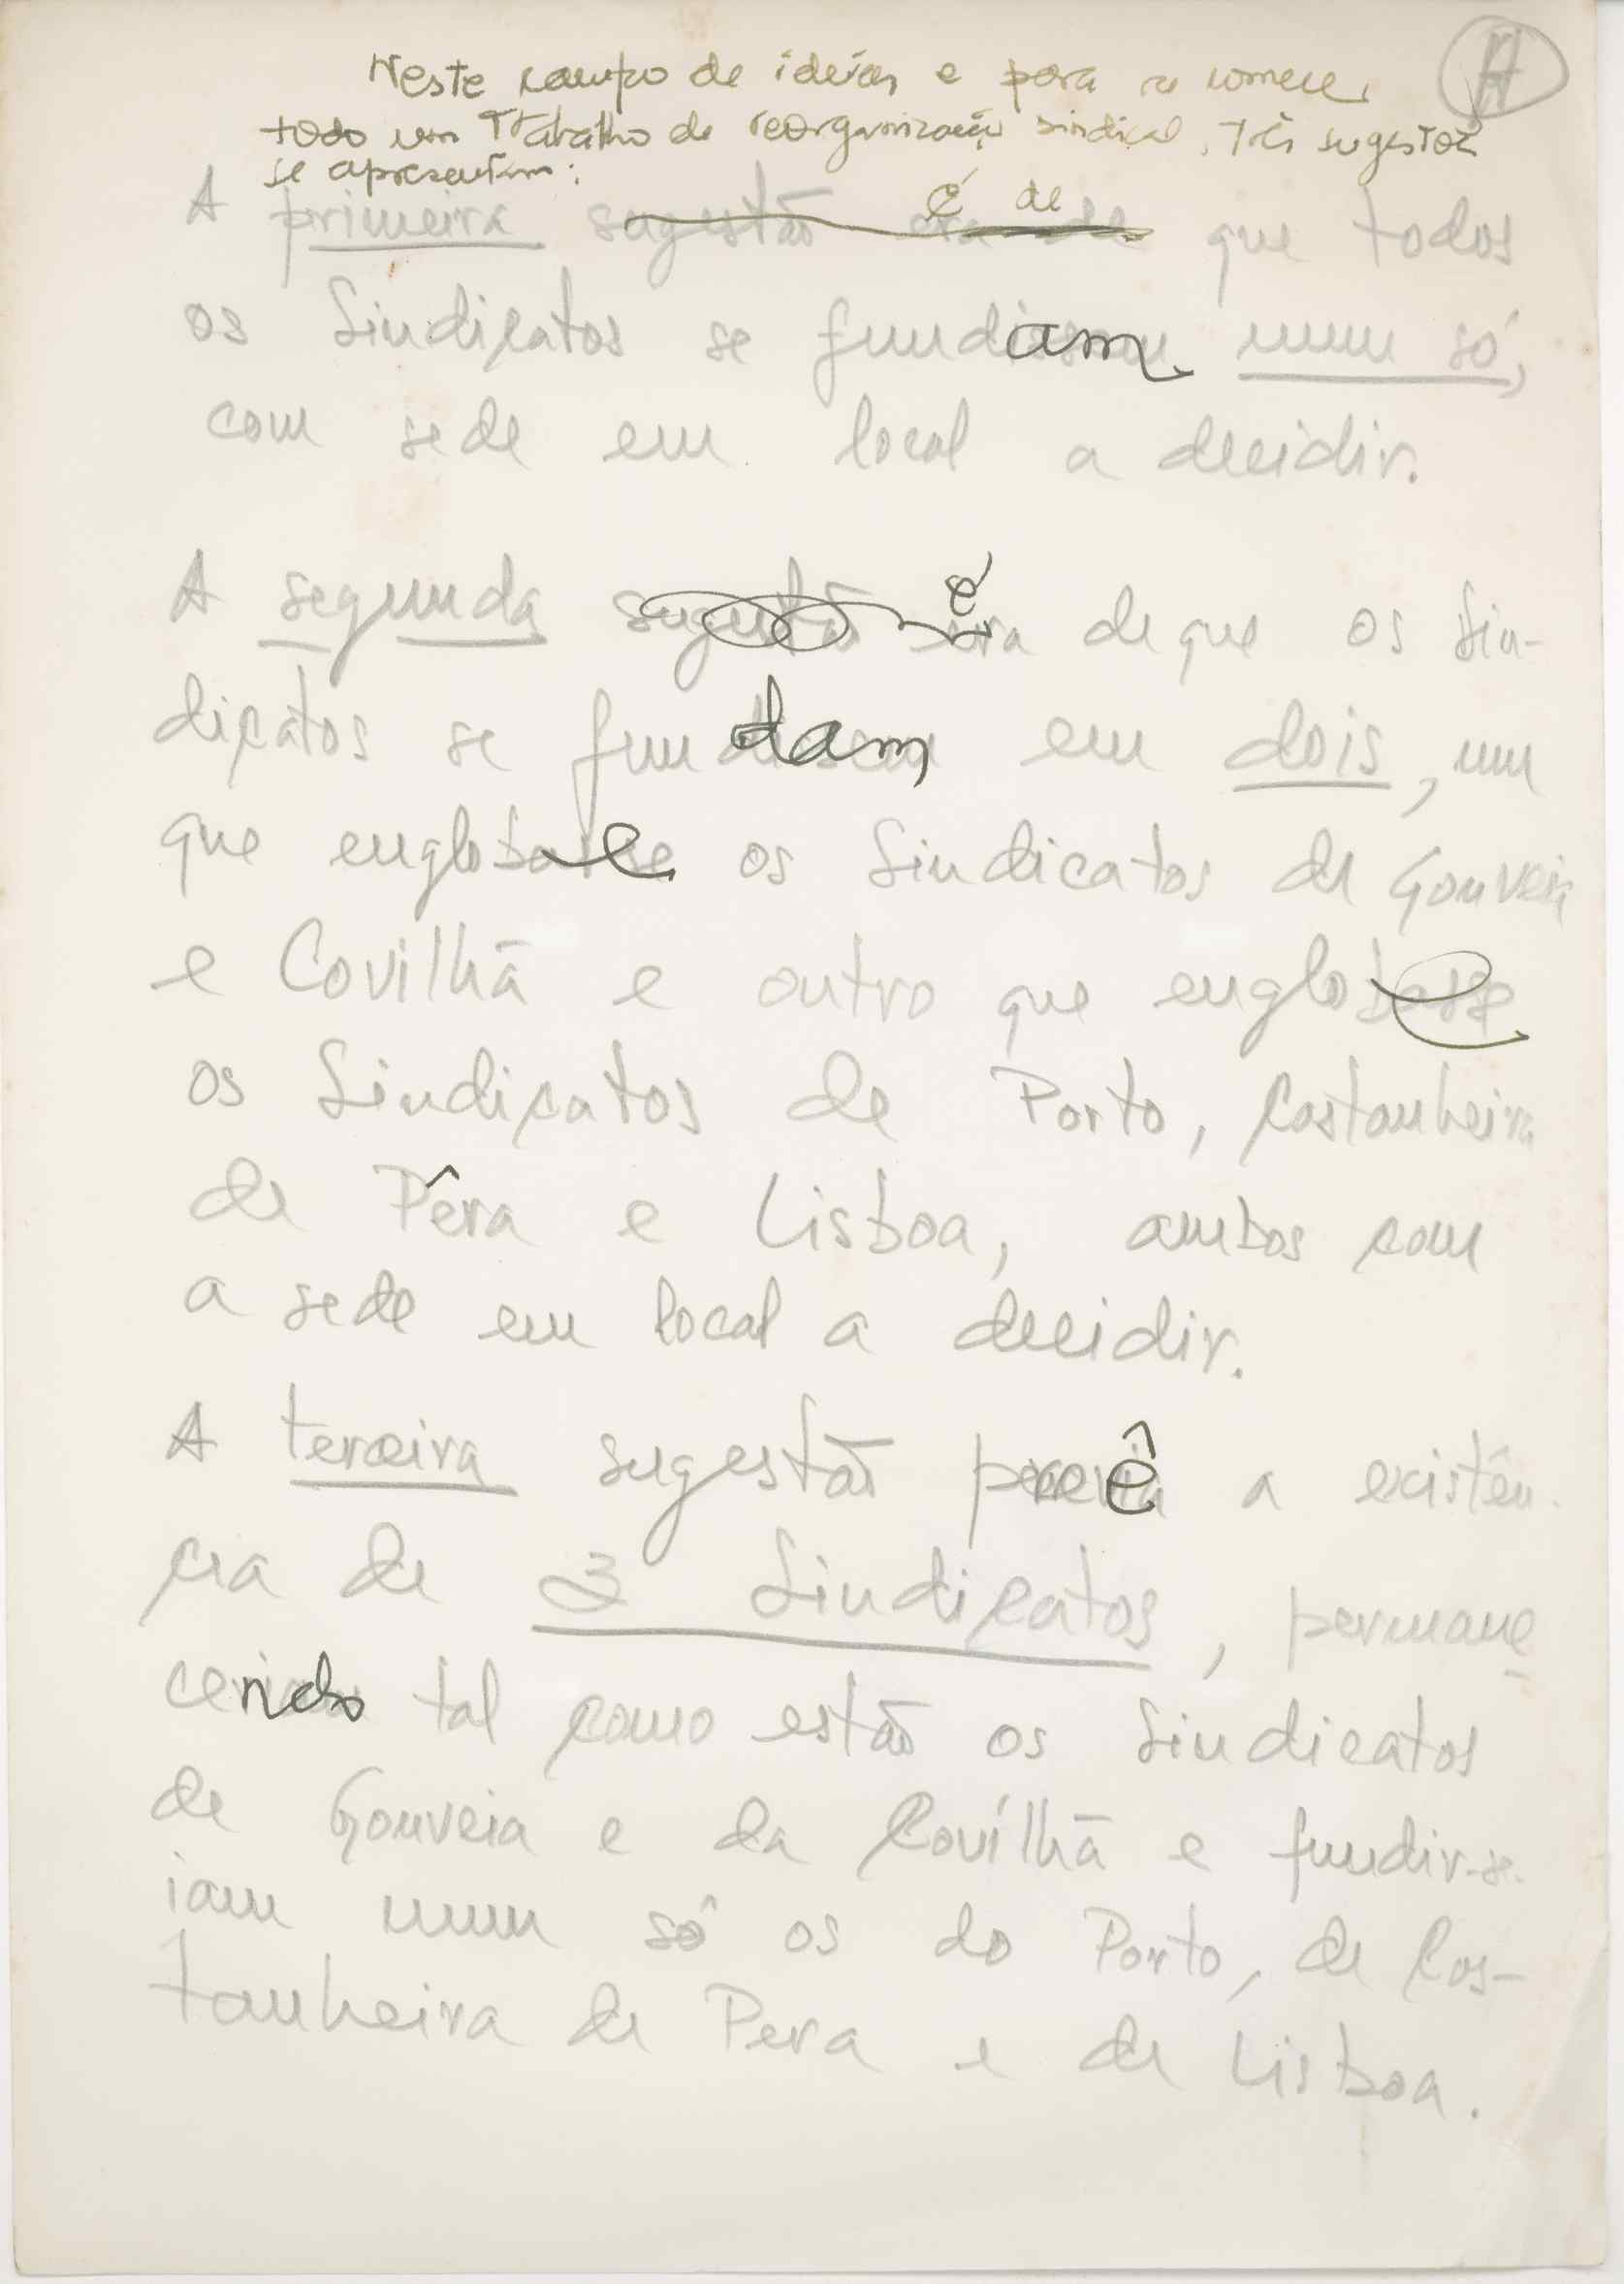 A
Neste campo de ideias e para se comece
todo um Trabalho de reorganização sindical, Três sugestões
se apresentam:
é de
A primeira sugestão era de que todos
os Sindicatos se fundam num só,
com sede em local a decidir.
é
A segunda sugestão era de que os Sin-
dicatos se fundam em dois, um
que englobe os Sindicatos de Gouveia
e Covilhã e outro que englobe
os Sindicatos de Porto, Castanheira
de Pêra e Lisboa, ambos com
a sede em local a decidir.
A terceira sugestão prevê a existên-
cia de 3 Sindicatos, permane
cendo tal como estão os Sindicatos
de Gouveia e da Covilhã e fundir-se-
iam num só os do Porto, de Cas-
tanheira de Pera e de Lisboa.